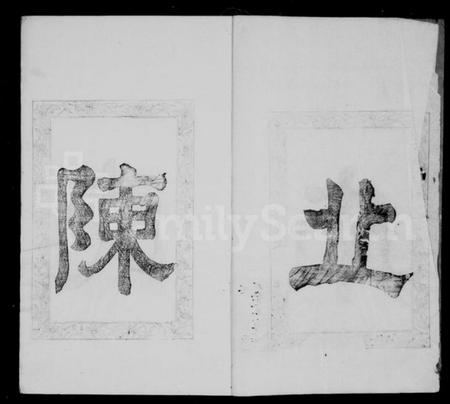 北
陳
FamilySearch